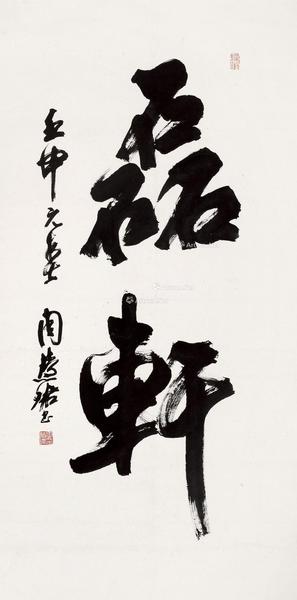 磊軒
壬申元春
周慧珺書